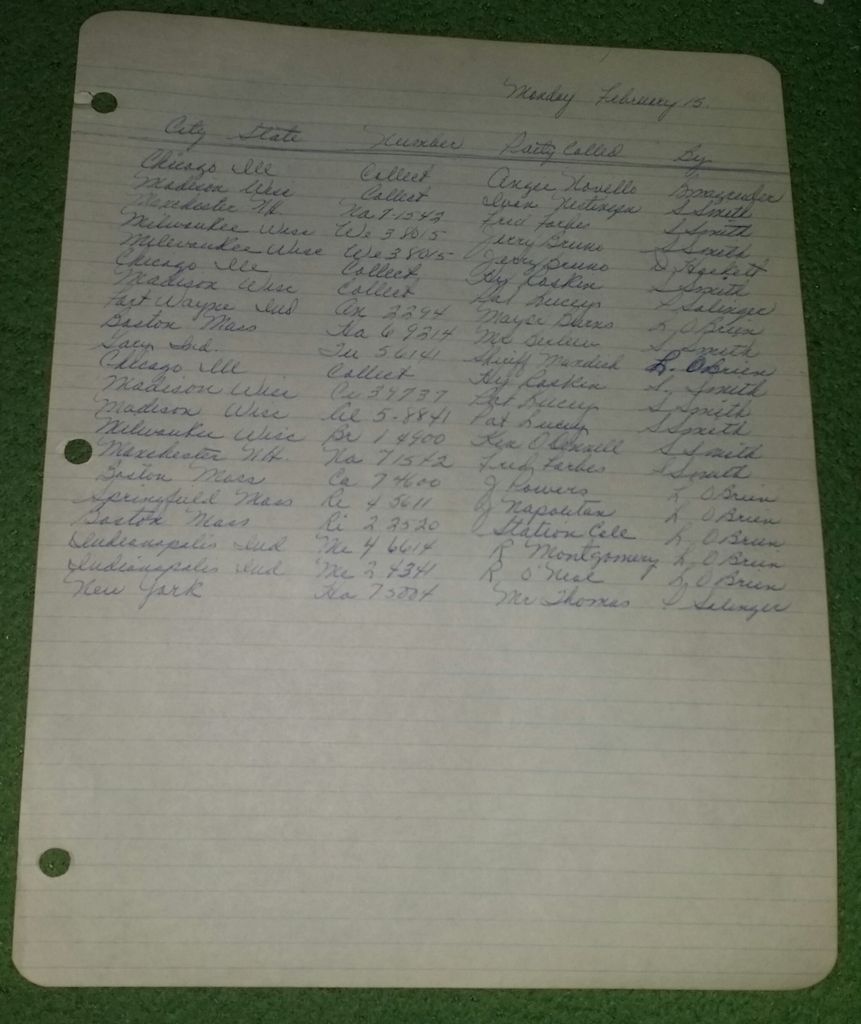 Monday February 15.
City State Number Party Called By
Chicago Ill Collect Angie Novello B Magruder
Madison Wisc Collect Ivan Nestingen S Smith
Manchester NH Na 7-1542 Fred Forbes S Smith
Milwaukee Wisc We 3 8015 Jerry Bruno S Smith
Milwaukee Wisc We 3 8015 Jerry Bruno D Hackett
Chicago Ill Collect Hy Raskin S Smith
Madison Wisc Collect Pat Lucey P Salinger
Fort Wayne Ind An 2294 Mayor Burns L O Brien
Boston Mass Ha 6 9214 Mr S Smith
Gary Ind. Tu 5 6141 Sheriff Mandich L. O Brien
Chicago Ill Collect Hy Raskin S. Smith
Madison Wisc Ce 3 7737 Pat Lucey S Smith
Madison Wisc Al 5-8841 Pat Lucey S Smith
Milwaukee Wisc Br 1 4900 Ken O Donnell S Smith
Manchester NH Na 7 1542 Fred Forbes S Smith
Boston Mass Ca 7 4600 J Powers L O Brien
Springfield Mass Re 4 5611 J Napolitan L O Brien
Boston Mass Ri 2 2520 Station Call L O Brien
Indianapolis Ind Me 4 6614 R Montgomery L O Brien
Indianapolis Ind Me 2 4341 R O'Neal L O Brien
New York Ha 7 5004 Mr Thomas P Salinger